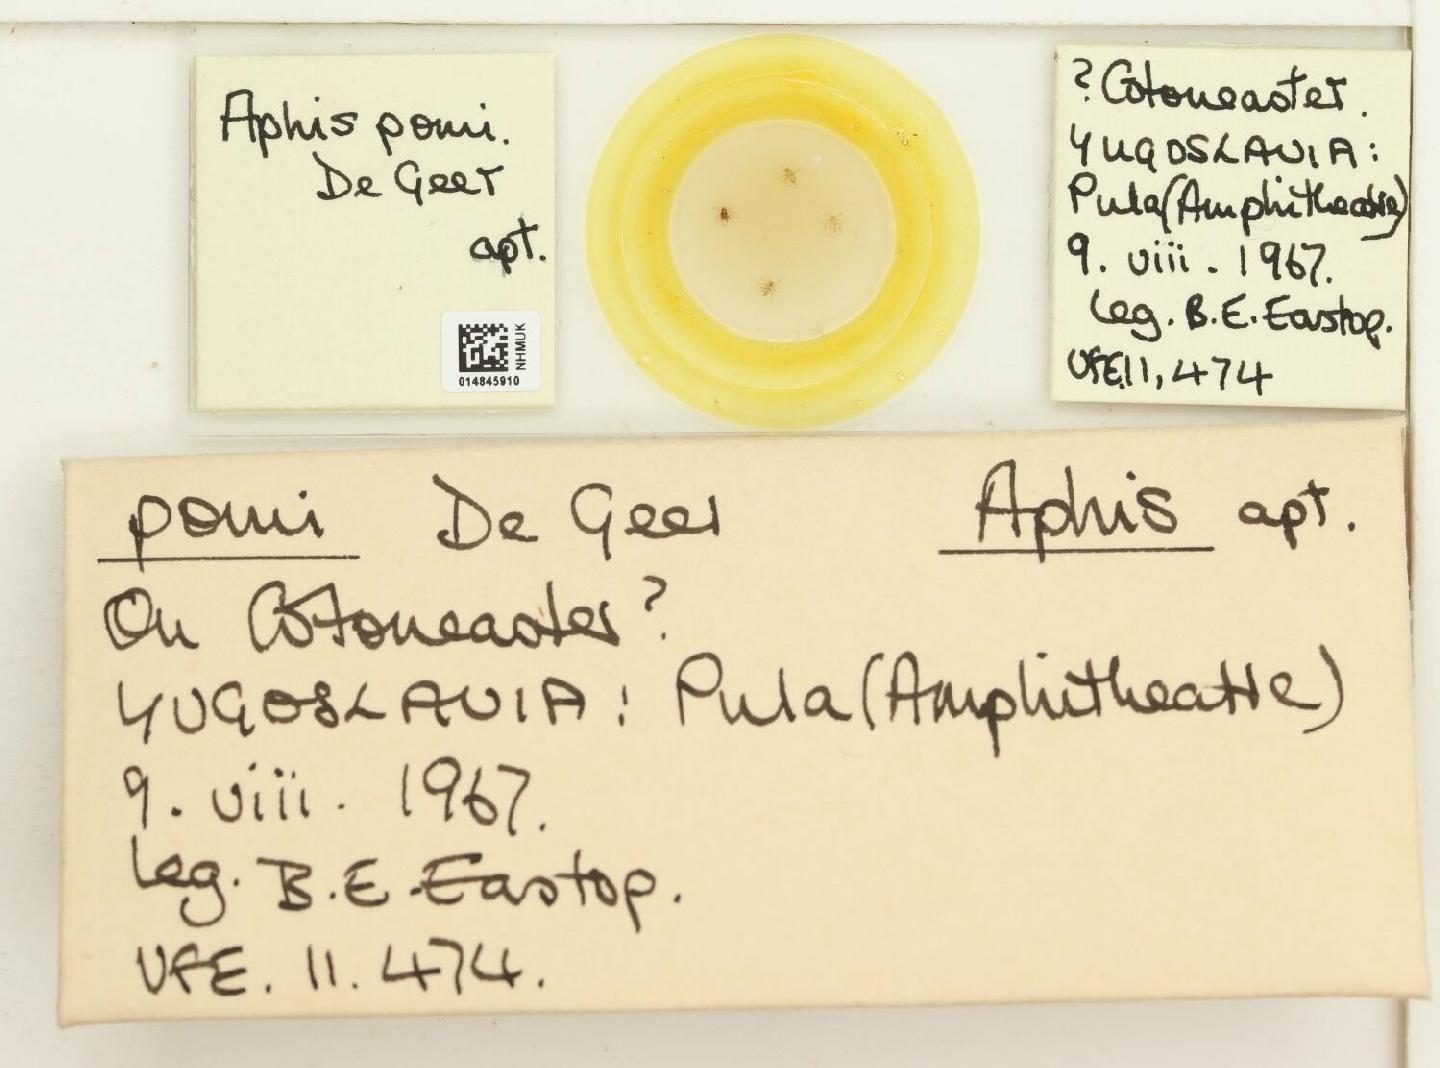 Aphis pomi.
De Geer
apt.
NHMUK
014845910
? Cotoneaster.
YUGOSLAVIA:
Pula (Amphitheatre)
9. viii. 1967.
Leg. B.E. Eastop.
VFE 11,474
pomi De Geer Aphis apt.
On Cotoneaster?
YUGOSLAVIA: Pula (Amphitheatre)
9. viii. 1967.
Leg. B.E. Eastop.
VFE. 11.474.